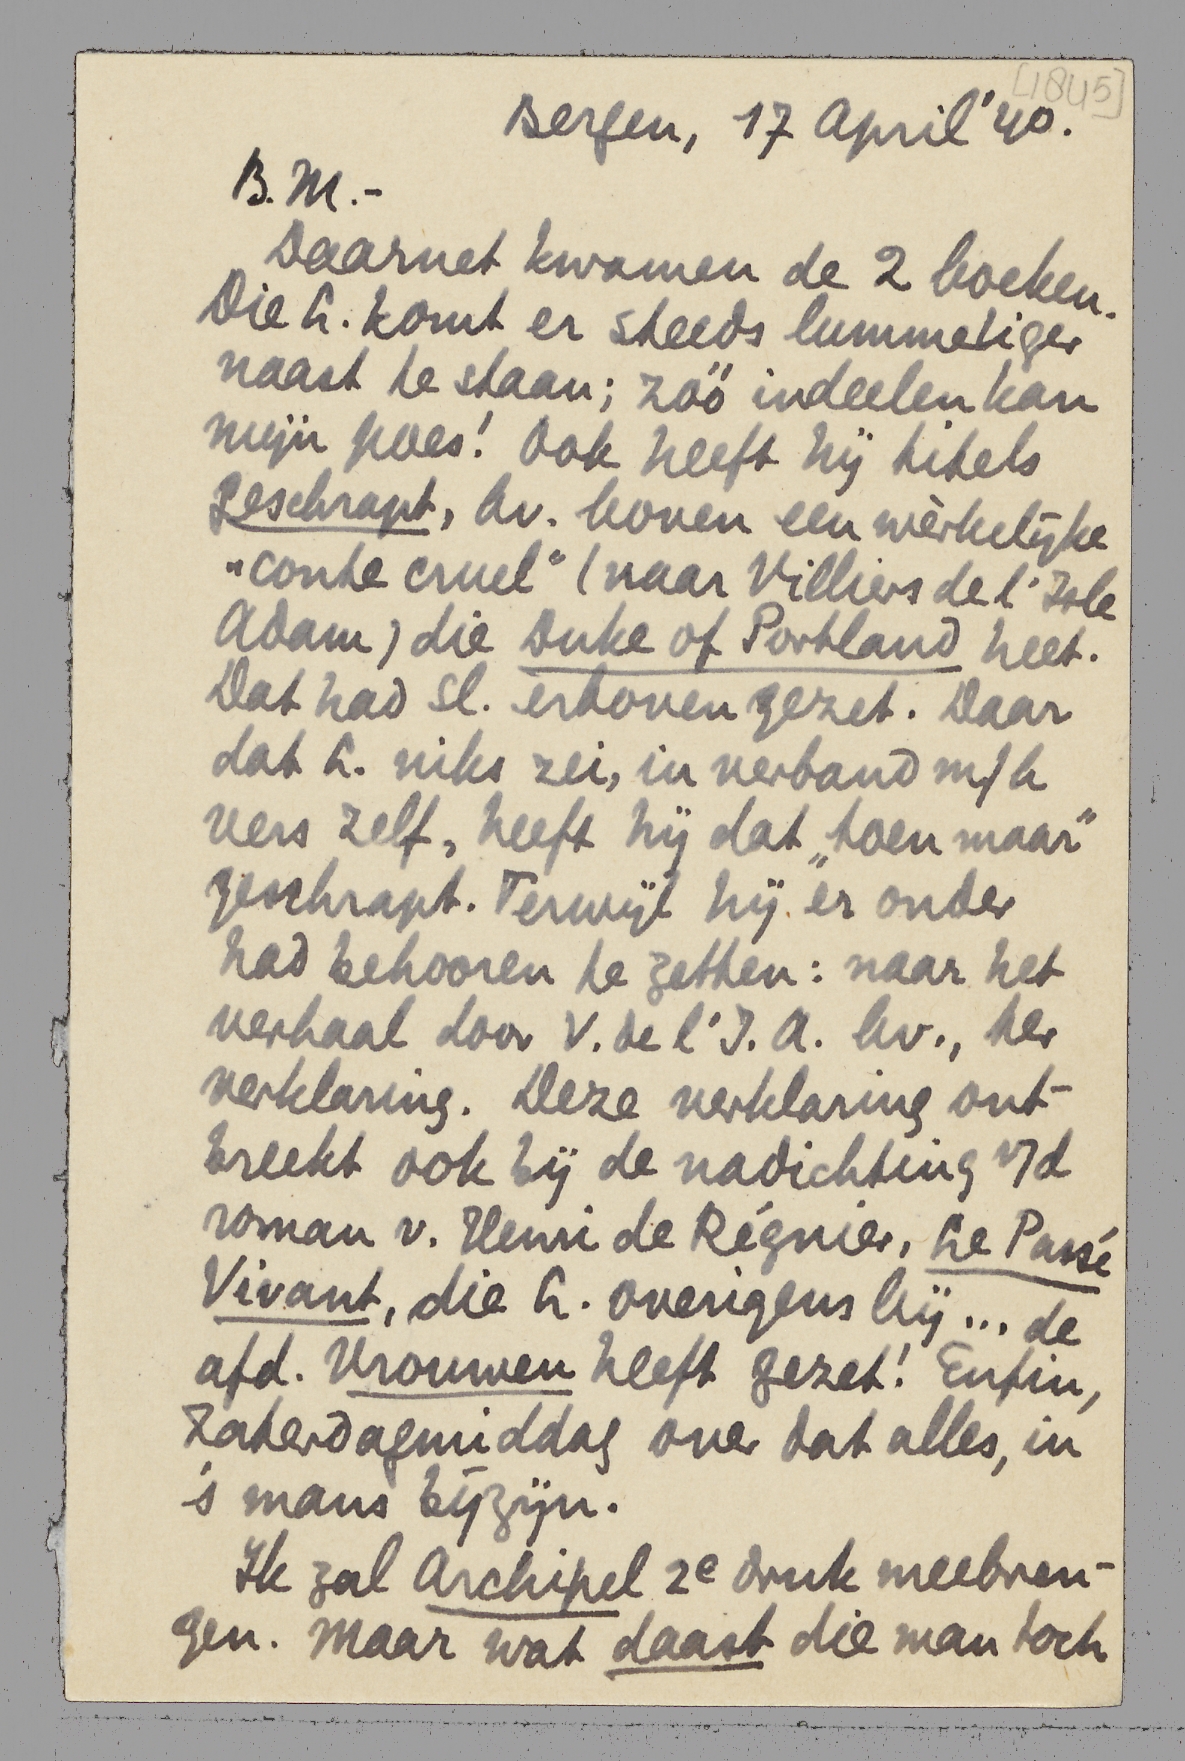 [1845]
Bergen, 17 April '40.
B.M.-
Daarnet kwamen de 2 boeken.
Die L. komt er steeds lummeliger
naast te staan; zóó indeelen kan
mijn poes! Ook heeft hij titels
geschrapt, bv. boven een wèrkelijke
"conte cruel" (naar Villiers de l'Isle
Adam) die Duke of Portland heet.
Dat had Sl. erboven gezet. Daar
dat L. niks zei, in verband m/h
vers zelf, heeft hij dat „toen maar"
geschrapt. Terwijl hij er onder
had behooren te zetten: naar het
verhaal door V. de l'I. A. bv., ter
verklaring. Deze verklaring ont-
breekt ook bij de nadichting v/d
roman v. Henri de Régnier, Le Passé
Vivant, die L. overigens bij ... de
afd. Vrouwen heeft gezet! Enfin,
Zaterdagmiddag over dat alles, in
's mans bijzijn.
Ik zal Archipel 2e druk meebren-
gen. Maar wat daast die man toch